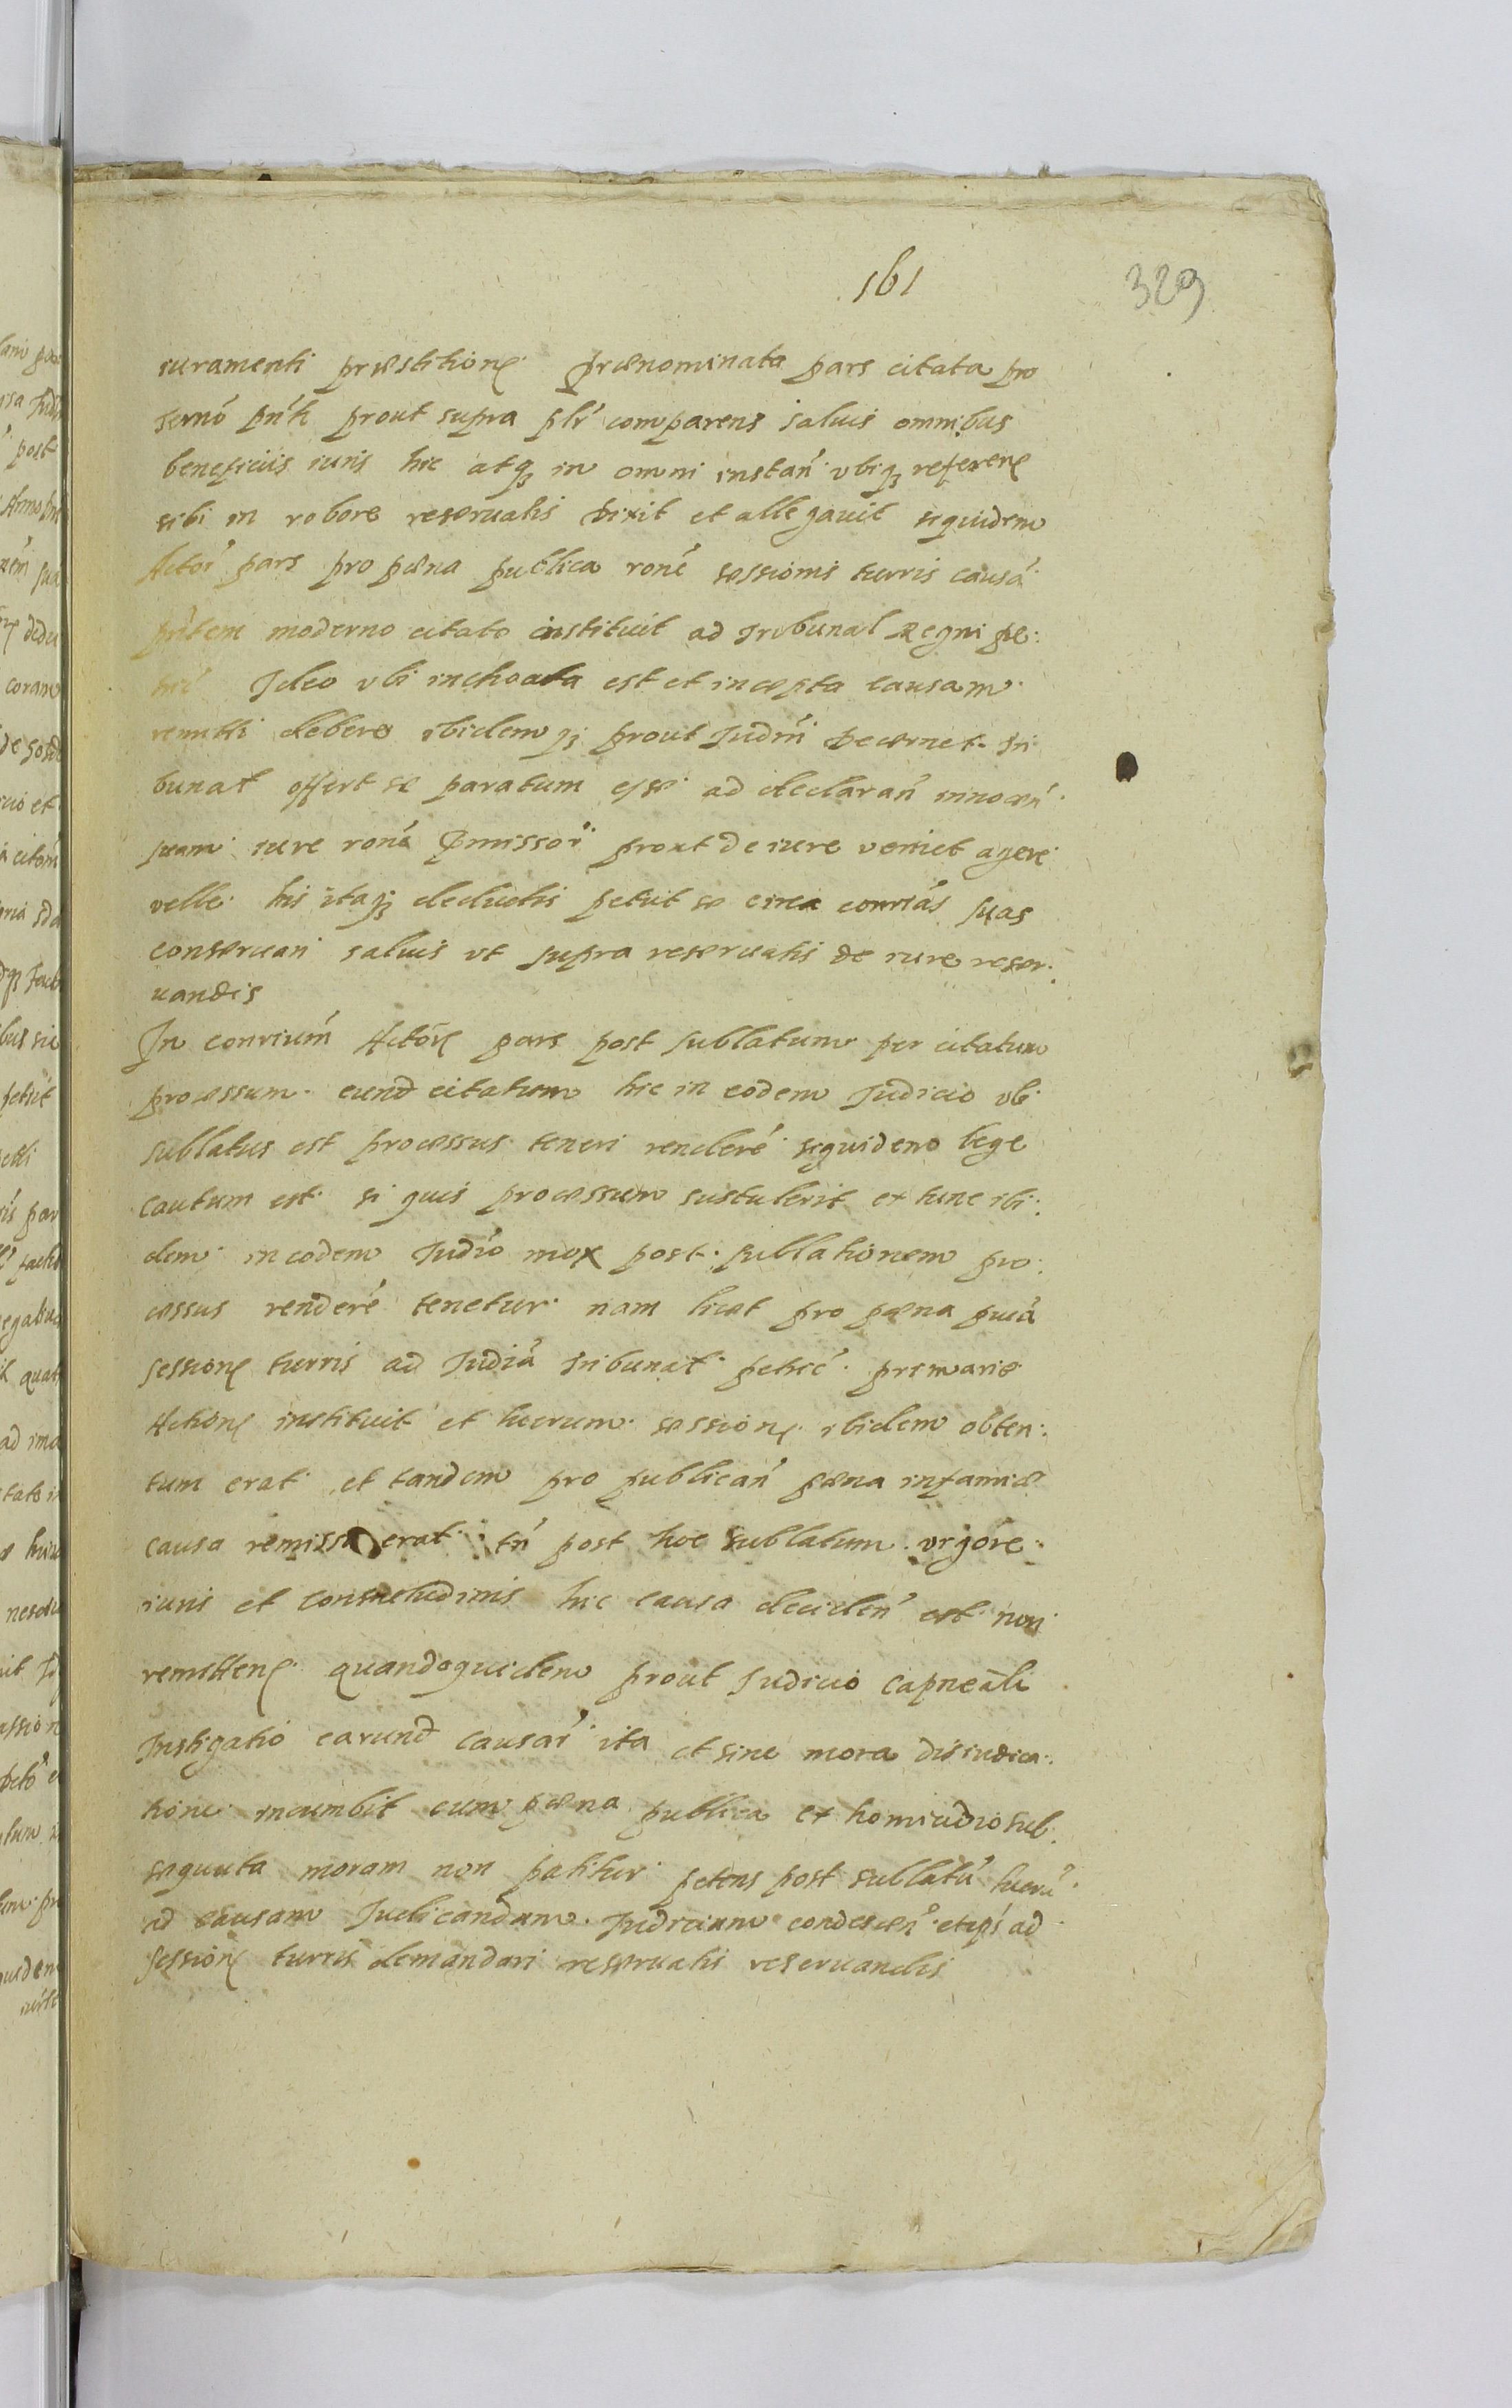 161
329
iuramenti præstitione Prænominata pars citata pro
termó pńti prout supra plr comparens saluis omnibus
beneficiis iuris hic atq in omni instań vbiq referens
sibi in robore reseruatis dixit et allegauit siquidem
Actor pars pro pæna publica roné sessionis turris causá
pńtem moderno citato instituit ad Tribunal Regni pe:
Ideo vbi inchoata est et incæpta causam
remitti debere ibidem q prout Judm decernet tri
bunal offert se paratum esse ad declarań innocen
suam iure roné pmissor prout de iure veniet agere
velle his itaq deductis petiit se circa contrás suas
conseruari saluis vt supra reseruatis de iure reser:
uandis
In contrium Actorea pars post sublatum per citatum
processum eund citatum hic in eodem Judicio vbi
sublatus est processus teneri renderé siquidem lege
cautum est si quis processum sustulerit ex tunc ibi:
dem in eodem Judio mox post sublationem pro:
cessus renderé tenetur nam licet pro pæna puca
sessione turris ad Judia Tribunal petric primarie
Actione instituit et lucrum sessione ibidem obten:
tum erat et tandem pro publicań pæna infamiæ
causa remissa erat tń post hoc sublatum vigore
iuris et consuetudinis hic causa deciden est non
remitten quandoquidem prout Judicio capneali
Instigatio earund causar ita et sine mora disiudica:
tione incumbit cum pæna publica ex homicidio sub:
sequuta moram non patitur petens post sublatú lucrú
ad causam Judicandum Judicium condescen et ad
sessione turris demandari reseruatis reseruandis